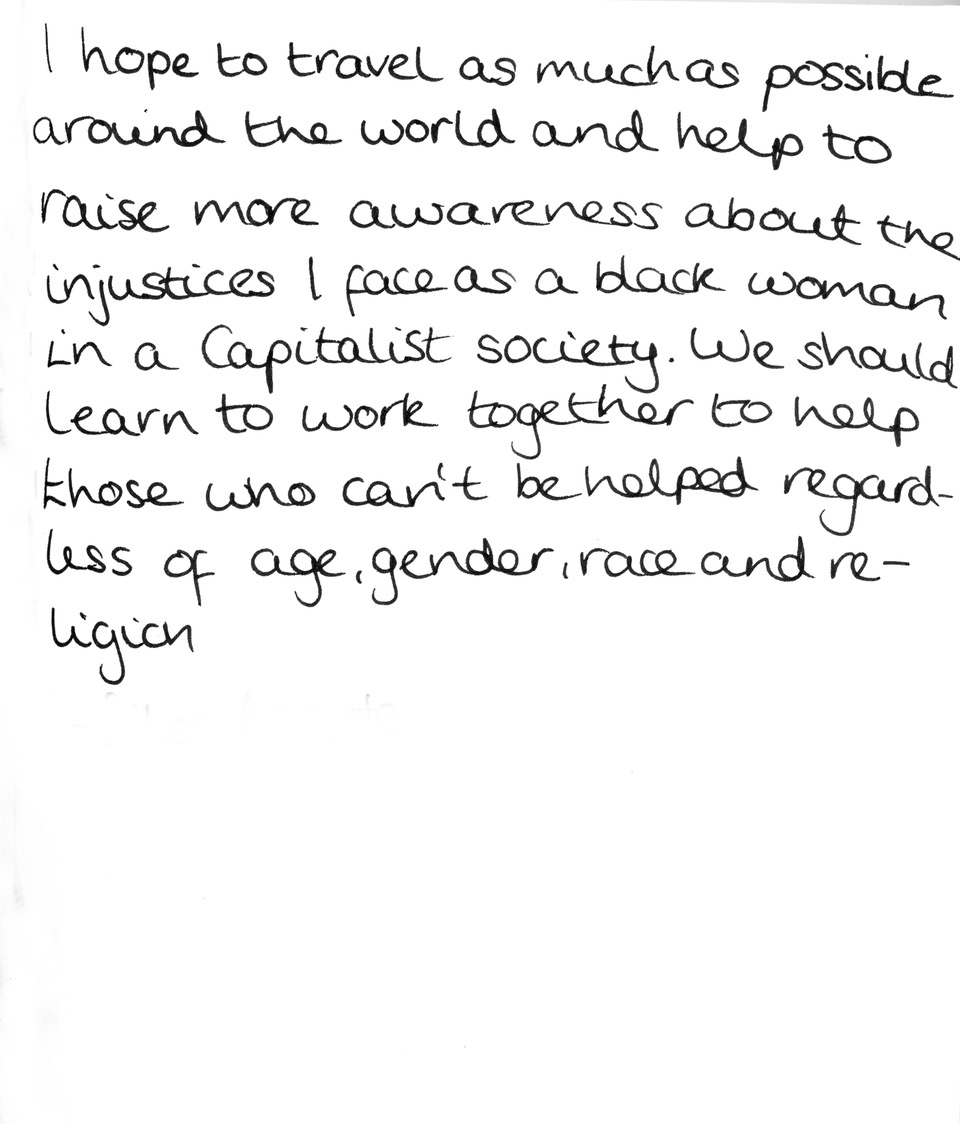 I hope to travel as much as possible
around the world and help to
raise more awareness about the
injustices I face as a black woman
in a Capitalist society. We should
learn to work together to help
those who can't be helped regard-
less of age, gender, race and re-
ligion